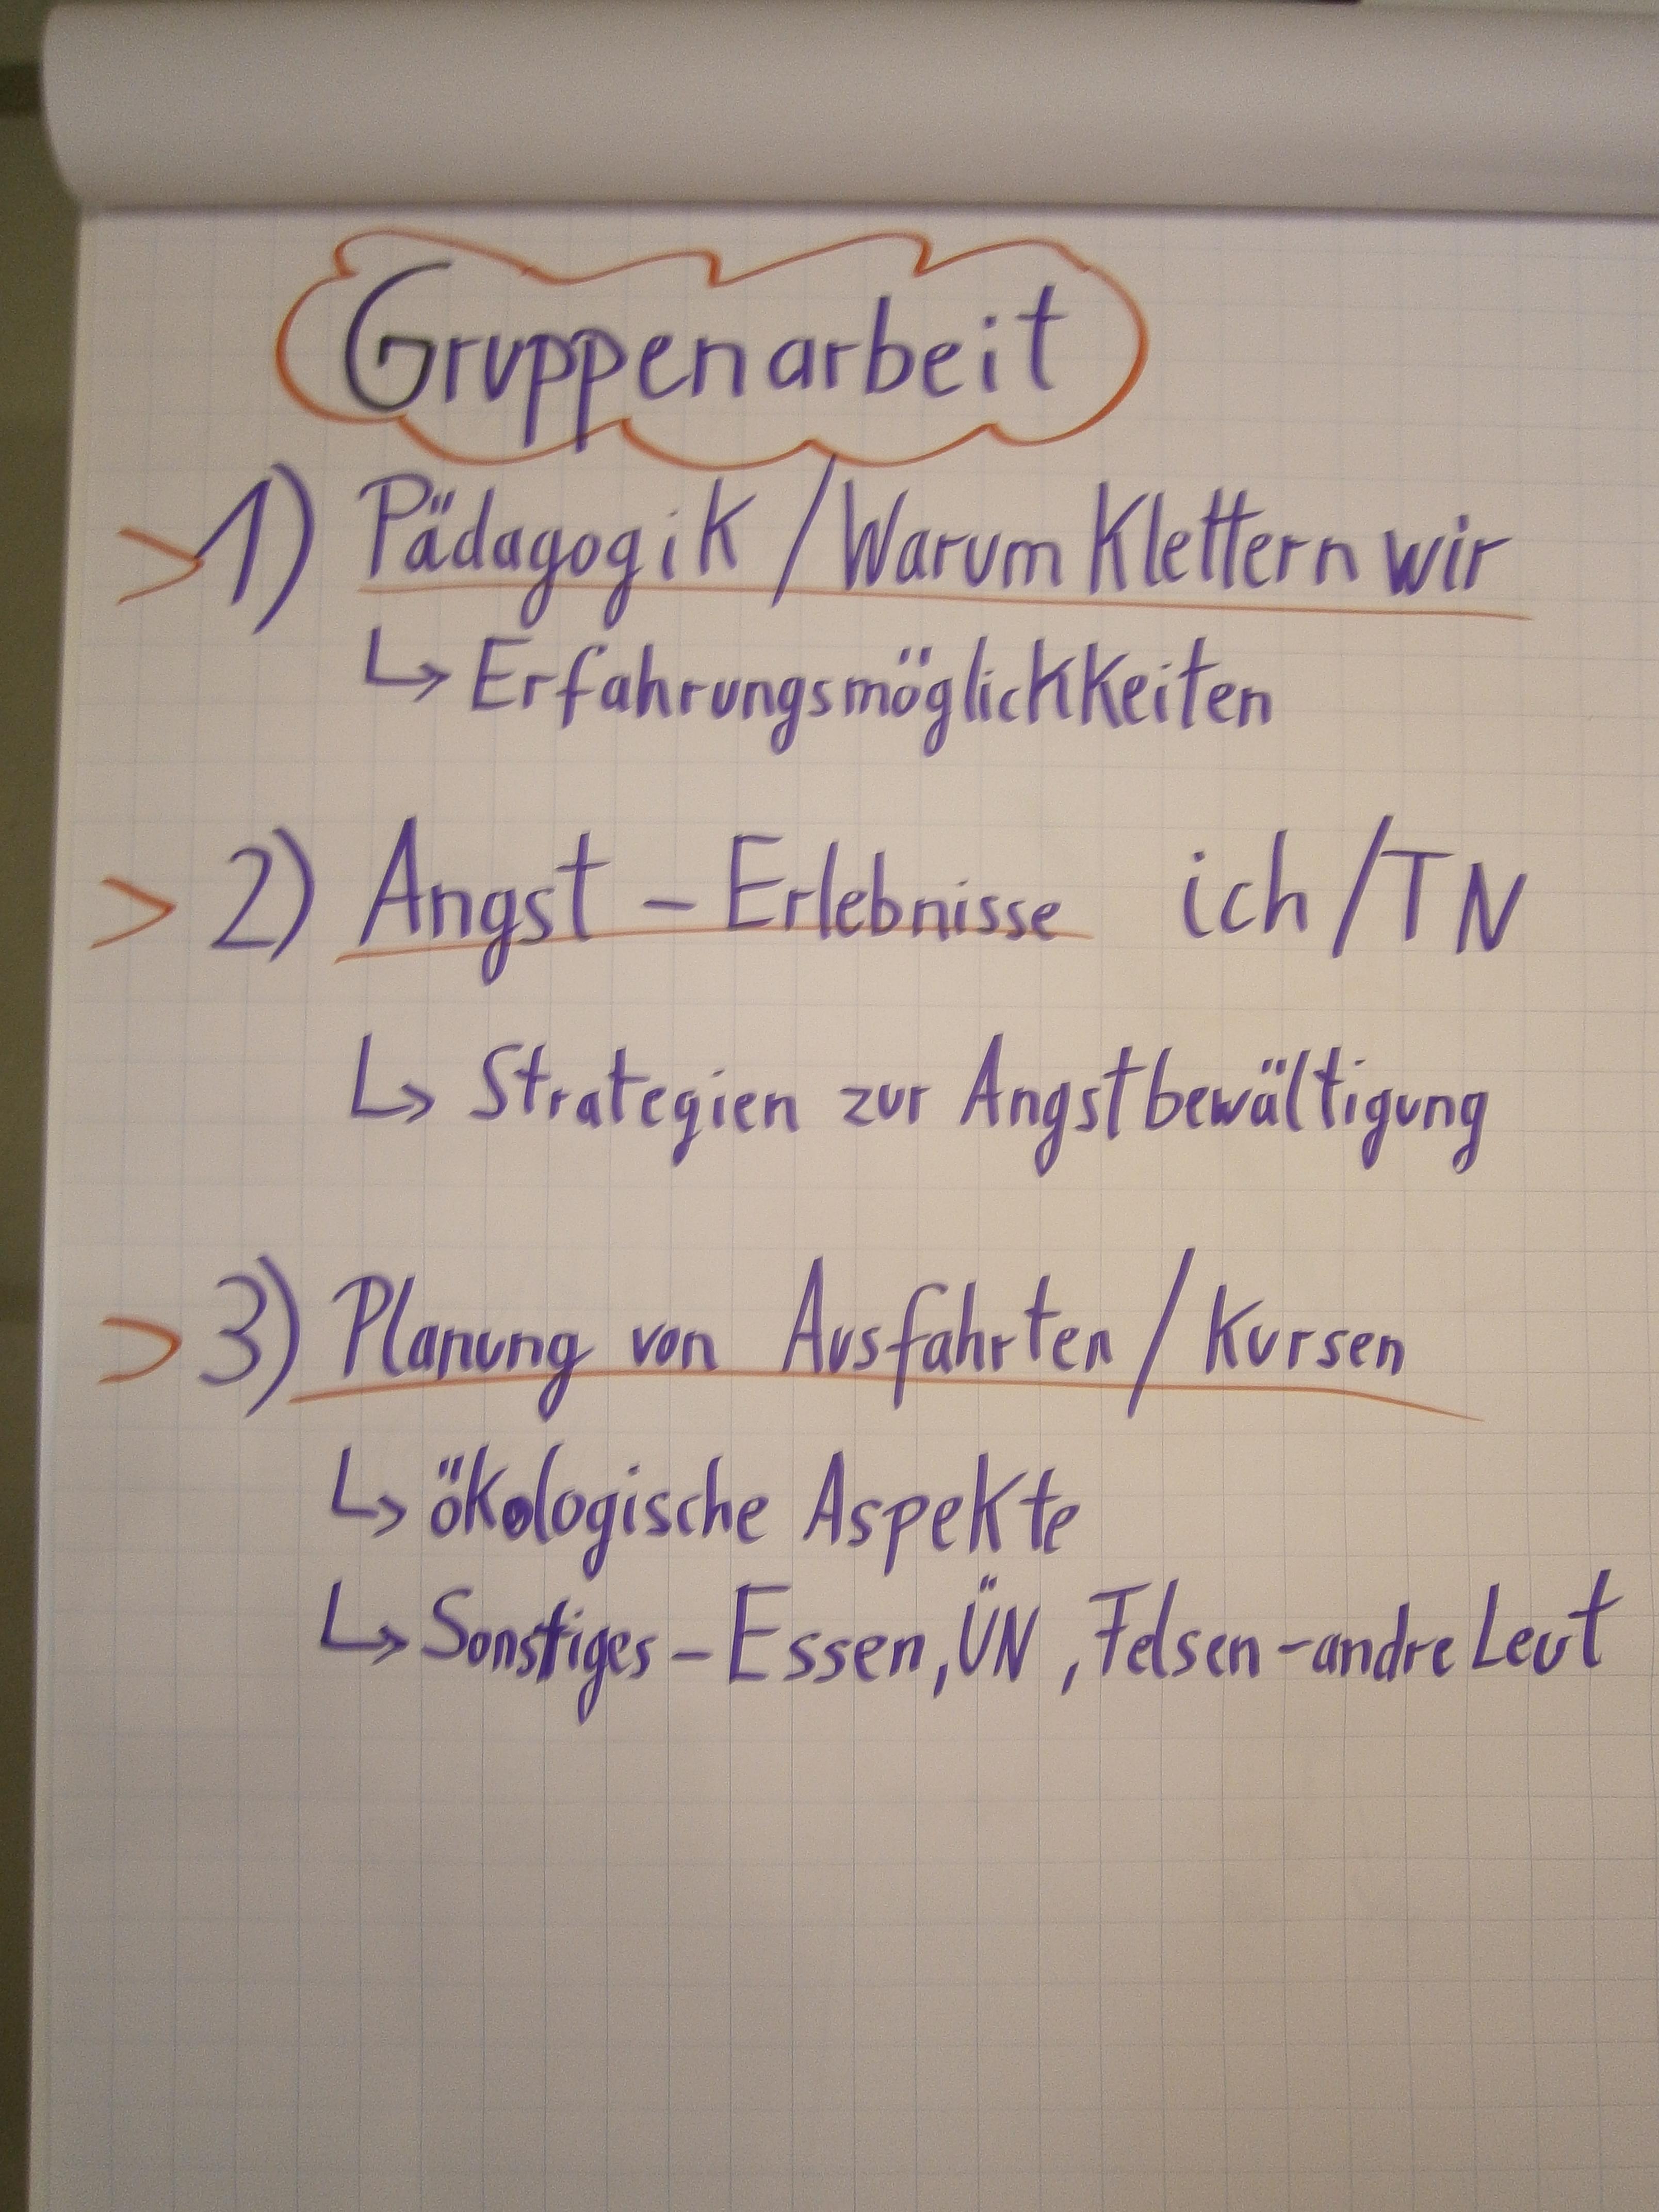 Gruppenarbeit
> 1) Pädagogik / Warum Klettern wir
↳ Erfahrungsmöglickkeiten
> 2) Angst – Erlebnisse ich / TN
↳ Strategien zur Angstbewältigung
> 3) Planung von Ausfahrten / Kursen
↳ ökologische Aspekte
↳ Sonstiges – Essen, ÜN, Felsen – andre Leut